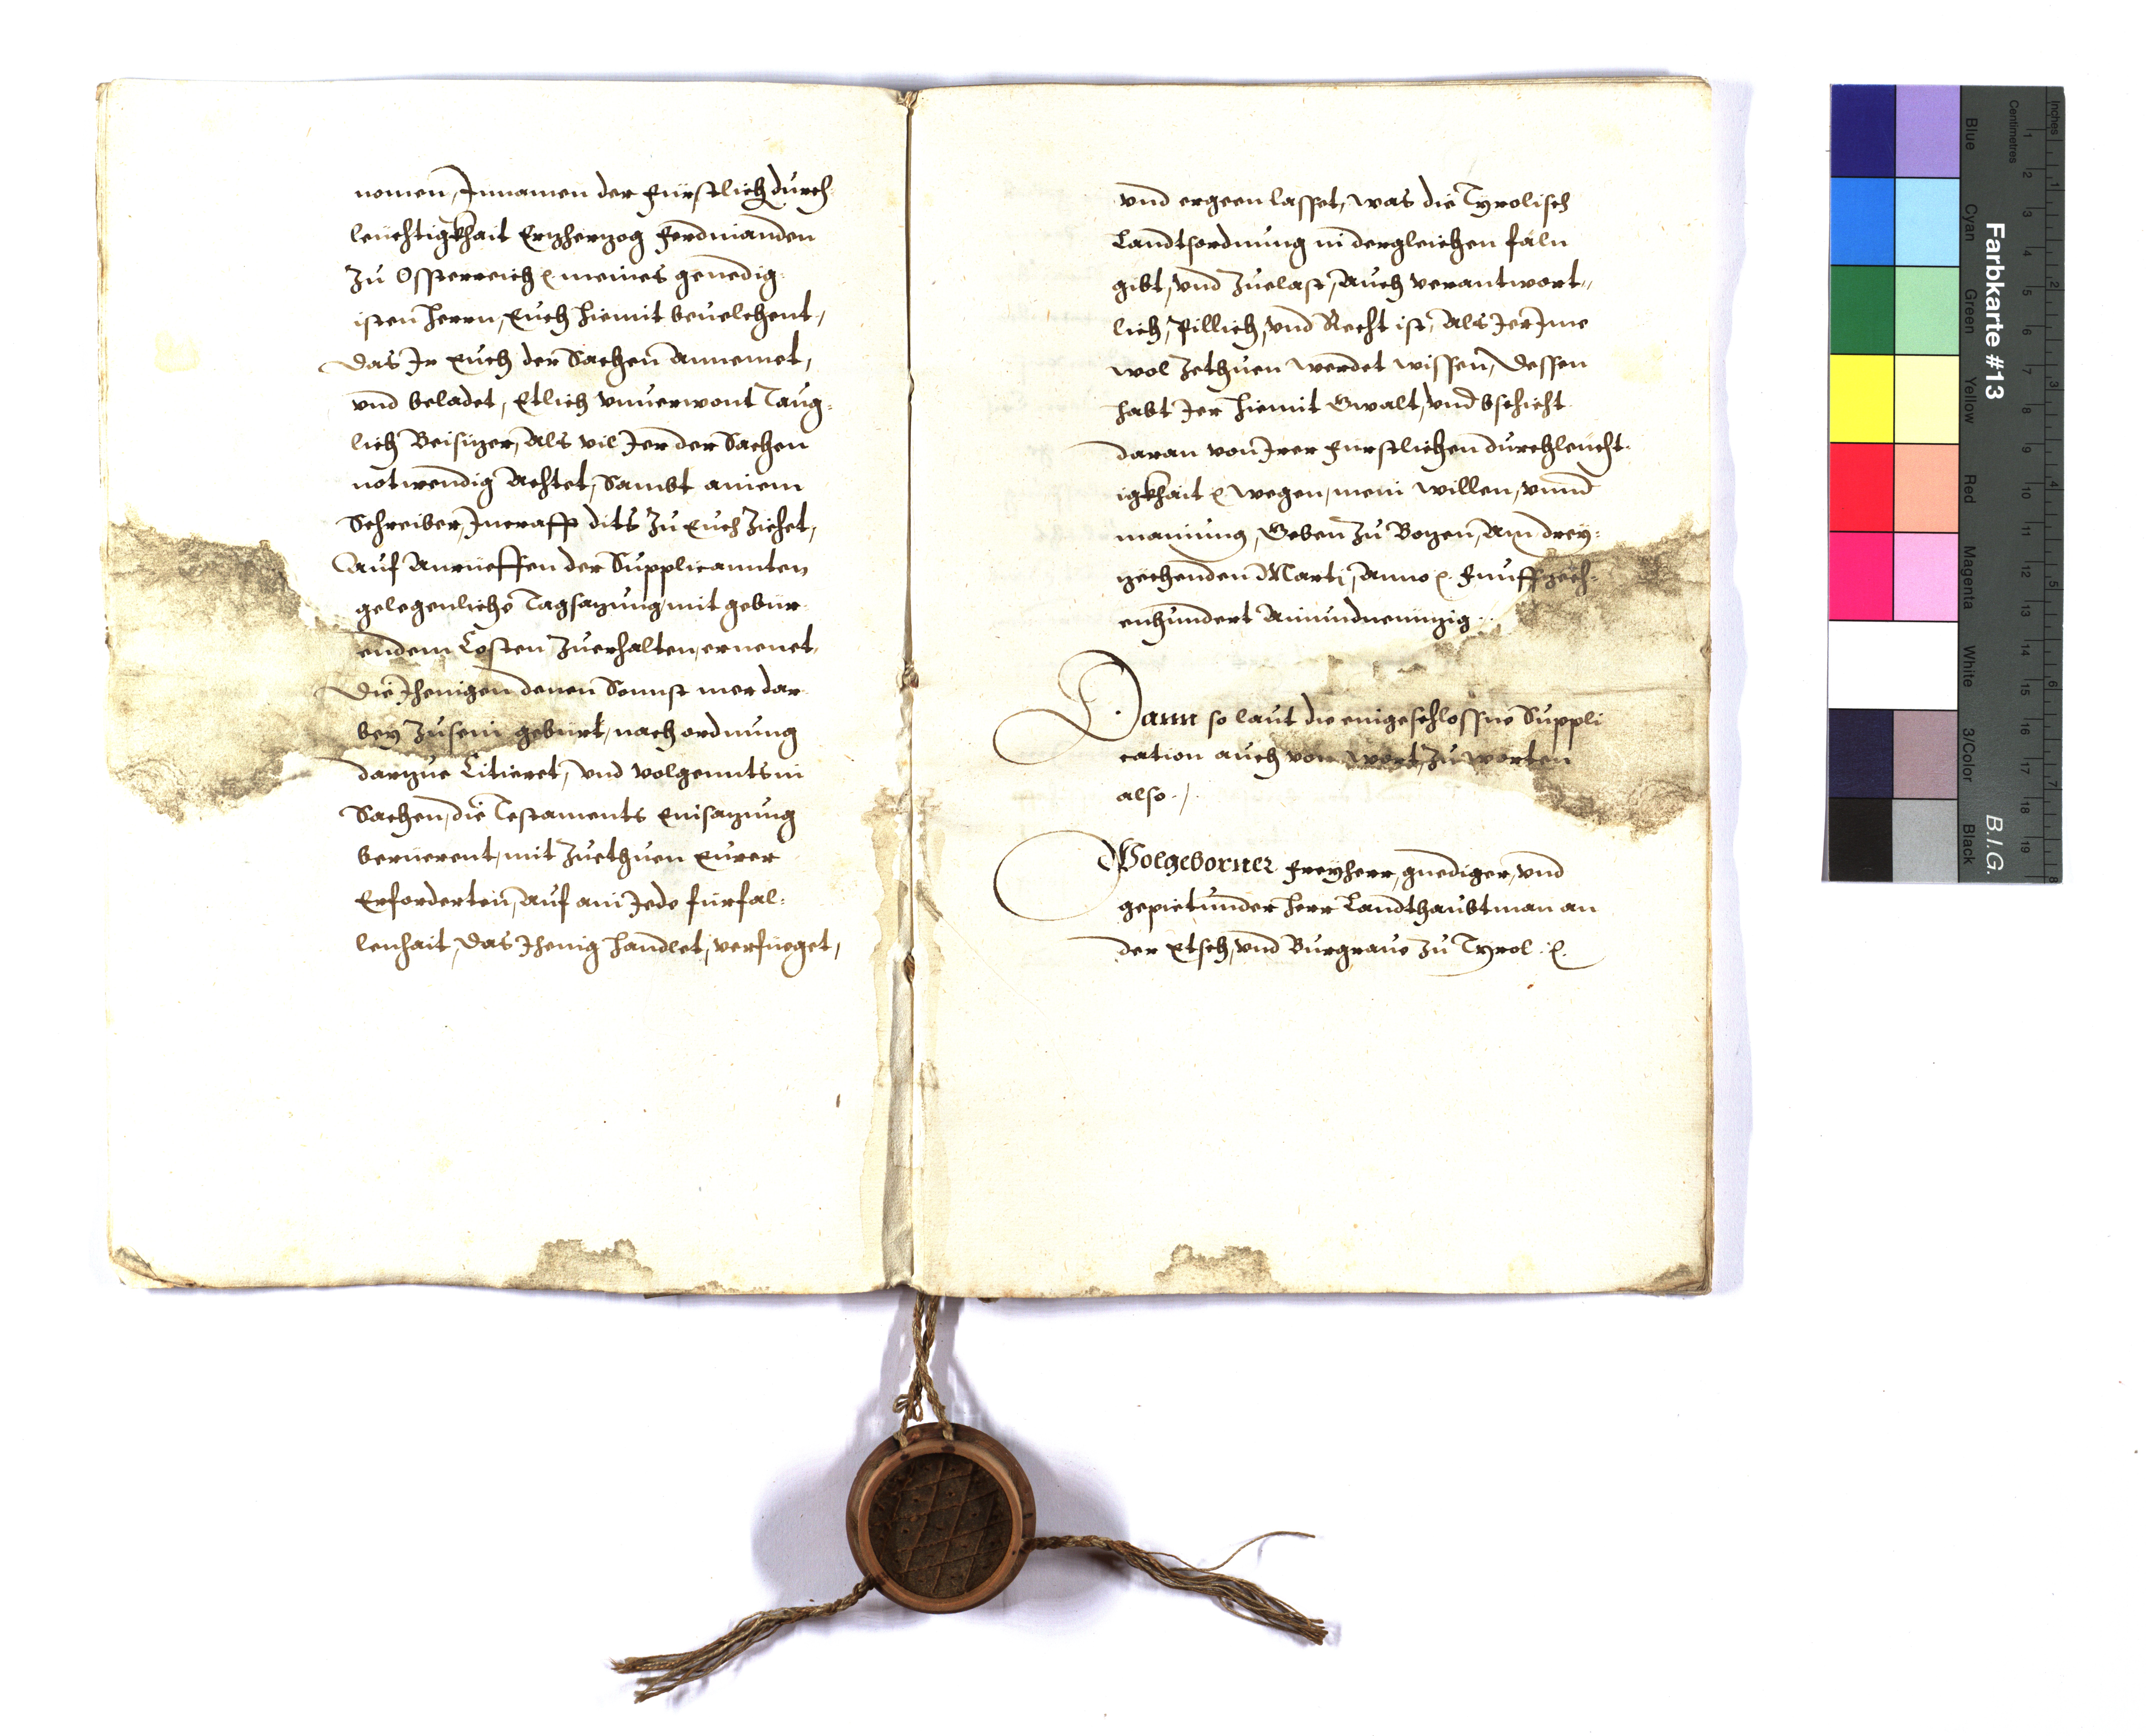 nomen, Innamen der fürstlich durch
leuchtigkhait Erzherzog Ferdinanden
zu Ossterreich &c. meines genedig:
isten herrn, Euch hiemit beuelchent,
das Ir Euch der Sachen annemet,
vnd beladet, Etlich vnuerwont Taug:
lich Beisizer, Als vil Ier der Sachen
notwendig Achtet, Sambt ainem
Schreiber, Incrafft dits zu Euch ziehet,
Auf Anrüeffen der Supplicannten
gelegenliche Tagsazung mit gebür
endem Costen zuerhalten, ernenet,
die Ihenigen denen Sonnst mer dar
bey zusein gebürt, nach ordnung
darzue Citieret, vnd volgennts in
Sachen, die Testaments Einsazung
berüerent, mit zuethuen Eurer
Erforderten, Auf ain Jede fürfal:
lenhait, das Ihenig handlet, verfüeget,
vnd ergeen lasset, was die Tyrolisch
Landtsordnung in dergleichen fäln
gibt, vnd zuelast, Auch verantwort„
lich, Pillich, vnd Recht ist, Als Ier Ime
wol zethuen werdet wissen, dessen
habt Ier hiemit Gwalt, vnd bschicht
daran von Irer fürstlichen durchleucht:
igkhait &c. wegen, mein willen, vnnd
mainung, Geben zu Bozen, Am drey:
zechenden Marti, Anno &c. Funffzech:
enhundert Ainundneunzig.
Dann so laut die eingeschlossne Suppli
cation auch von wort, zu worten
also ./.
Wolgeborner Freyherr, gnediger, vnd
gepietunder herr Landthaubtman an
der Etsch, vnd Burgraue zu Tyrol. &c.
Farbkarte #13
B.I.G.
Blue
Cyan
Green
Yellow
Red
Magenta
White
3/Color
Black
Inches
Centimetres
1 2 3 4 5 6 7 8 9 10 11 12 13 14 15 16 17 18 19
1 2 3 4 5 6 7 8